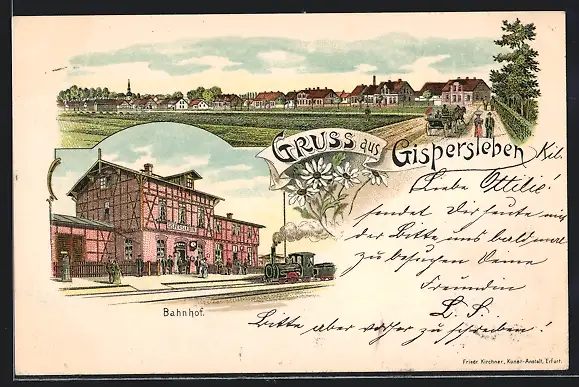 GRUSS aus Gispersleben Kil.
Liebe Ottilie!
sendet Dir heute mit
der Bitte uns bald mal
zu besuchen Deine
Freundin
L. S.
Bitte aber vorher zu schreiben!
GISPERSLEBEN
Bahnhof.
Friedr. Kirchner, Kunst-Anstalt, Erfurt.